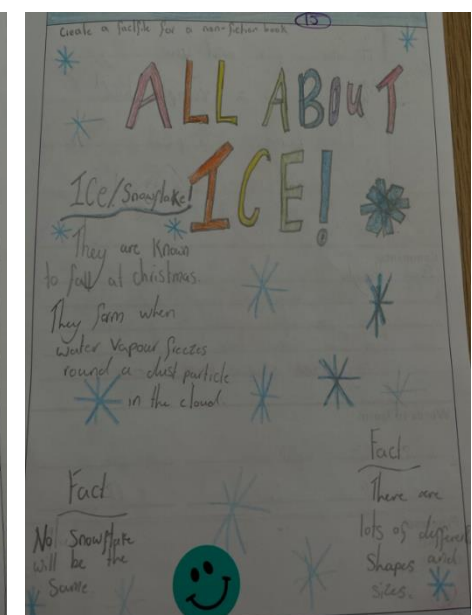 Create a factfile for a non-fiction book
15
ALL ABOUT
ICE!
Ice/Snowflake!
They are known
to fall at christmas.
They form when
water vapour freezes
round a dust particle
in the cloud.
Fact
No Snowflake
will be the
Same
Fact
There are
lots of different
Shapes and
sizes.